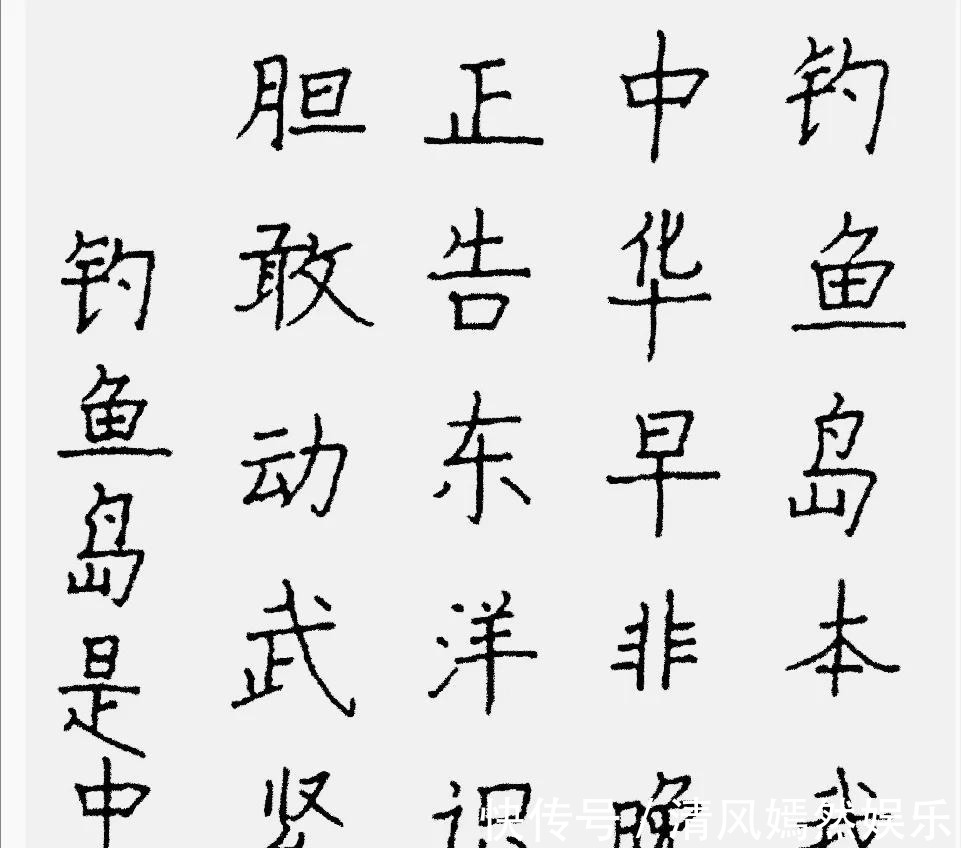 钓鱼岛本我
中华早非晚
正告东洋识
胆敢动武坚
钓鱼岛是中
快传号/清风嫣然娱乐